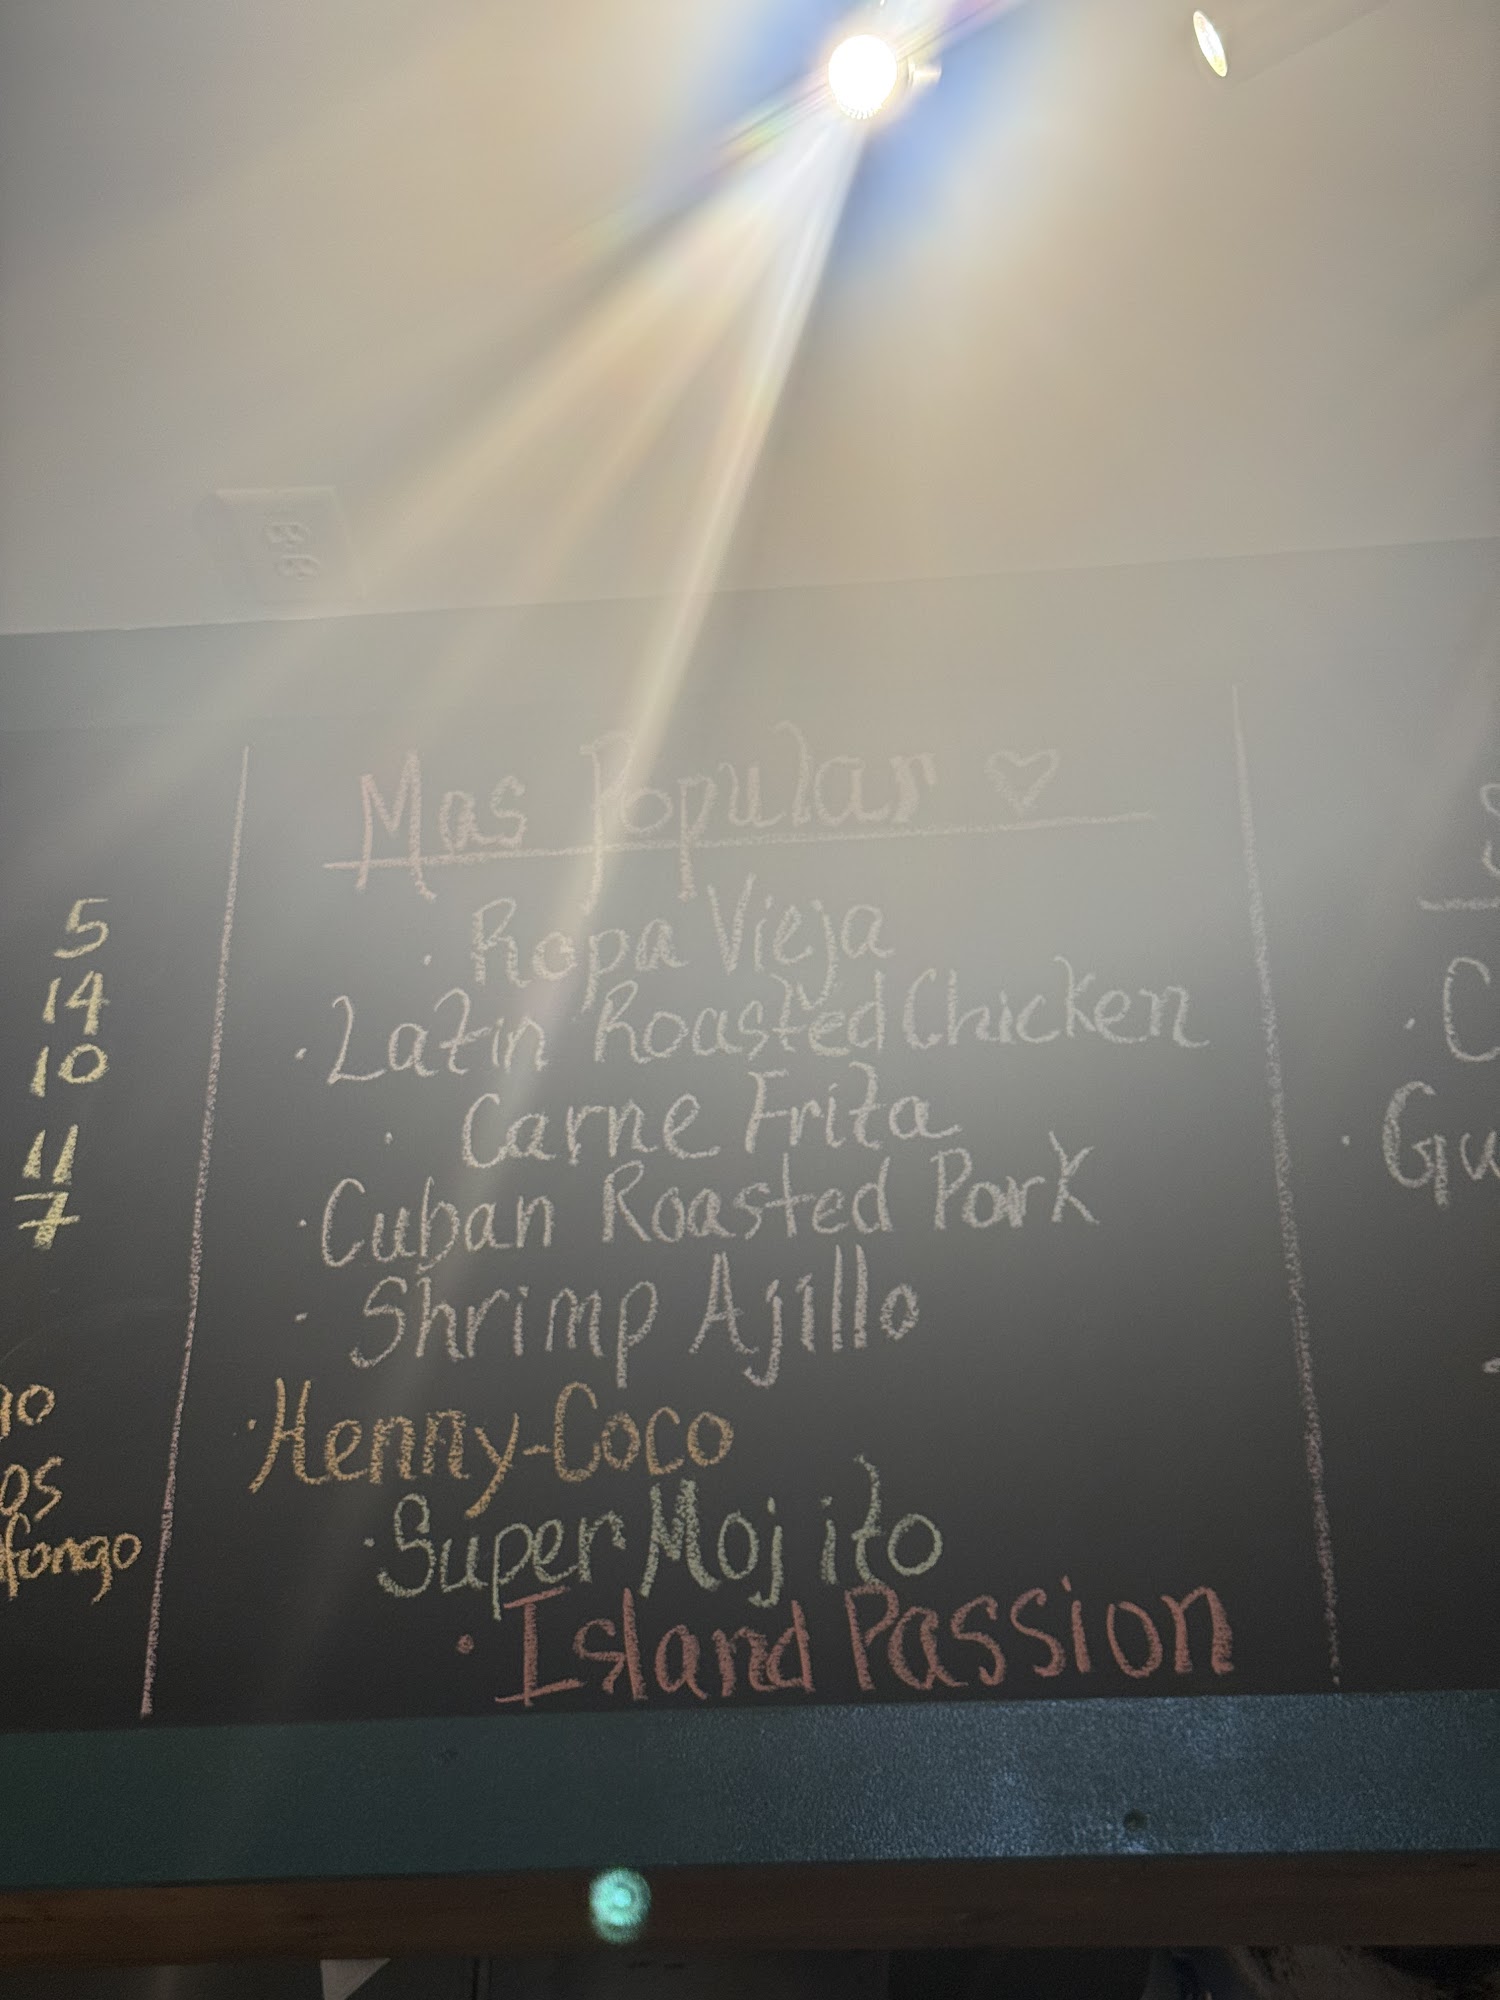 5
14
10
11
7
Mas Popular ♡
· Ropa Vieja
· Latin Roasted Chicken
· Carne Frita
· Cuban Roasted Pork
· Shrimp Ajillo
· Henny-Coco
· Super Mojito
· Island Passion
os
fongo
· C
· Gu